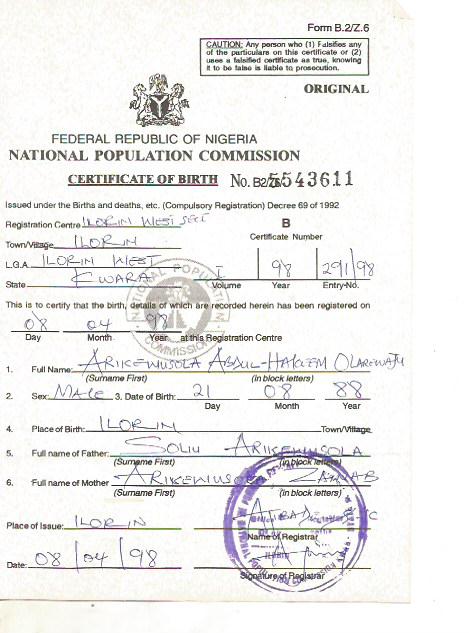 Form B.2/Z.6
CAUTION: Any person who (1) Falsifies any
of the particulars on this certificate or (2)
uses a falsified certificate as true, knowing
it to be false is liable to prosecution.
ORIGINAL
FEDERAL REPUBLIC OF NIGERIA
NATIONAL POPULATION COMMISSION
CERTIFICATE OF BIRTH No. B2/Z6/5543611
Issued under the Births and deaths, etc. (Compulsory Registration) Decree 69 of 1992
Registration Centre ILORIN WEST B
Town/Village ILORIN Certificate Number
L.G.A. ILORIN WEST I 98 291/98
State KWARA Volume Year Entry-No.
NATIONAL POPULATION COMMISSION
This is to certify that the birth, details of which are recorded herein has been registered on
08 04 98
Day Month Year at this Registration Centre
1. Full Name: ARIKEWUSOLA ABDUL-HAKEEM OLAREWAJU
(Surname First) (in block letters)
2. Sex: MALE 3. Date of Birth: 21 08 88
Day Month Year
4. Place of Birth: ILORIN Town/Village
5. Full name of Father: SOLIU ARIKEWUSOLA
(Surname First) (in block letters)
6. Full name of Mother ARIKEWUSOLA ZAINAB
(Surname First) (in block letters)
Place of Issue: ILORIN
Name of Registrar
Date: 08/04/98
Signature of Registrar